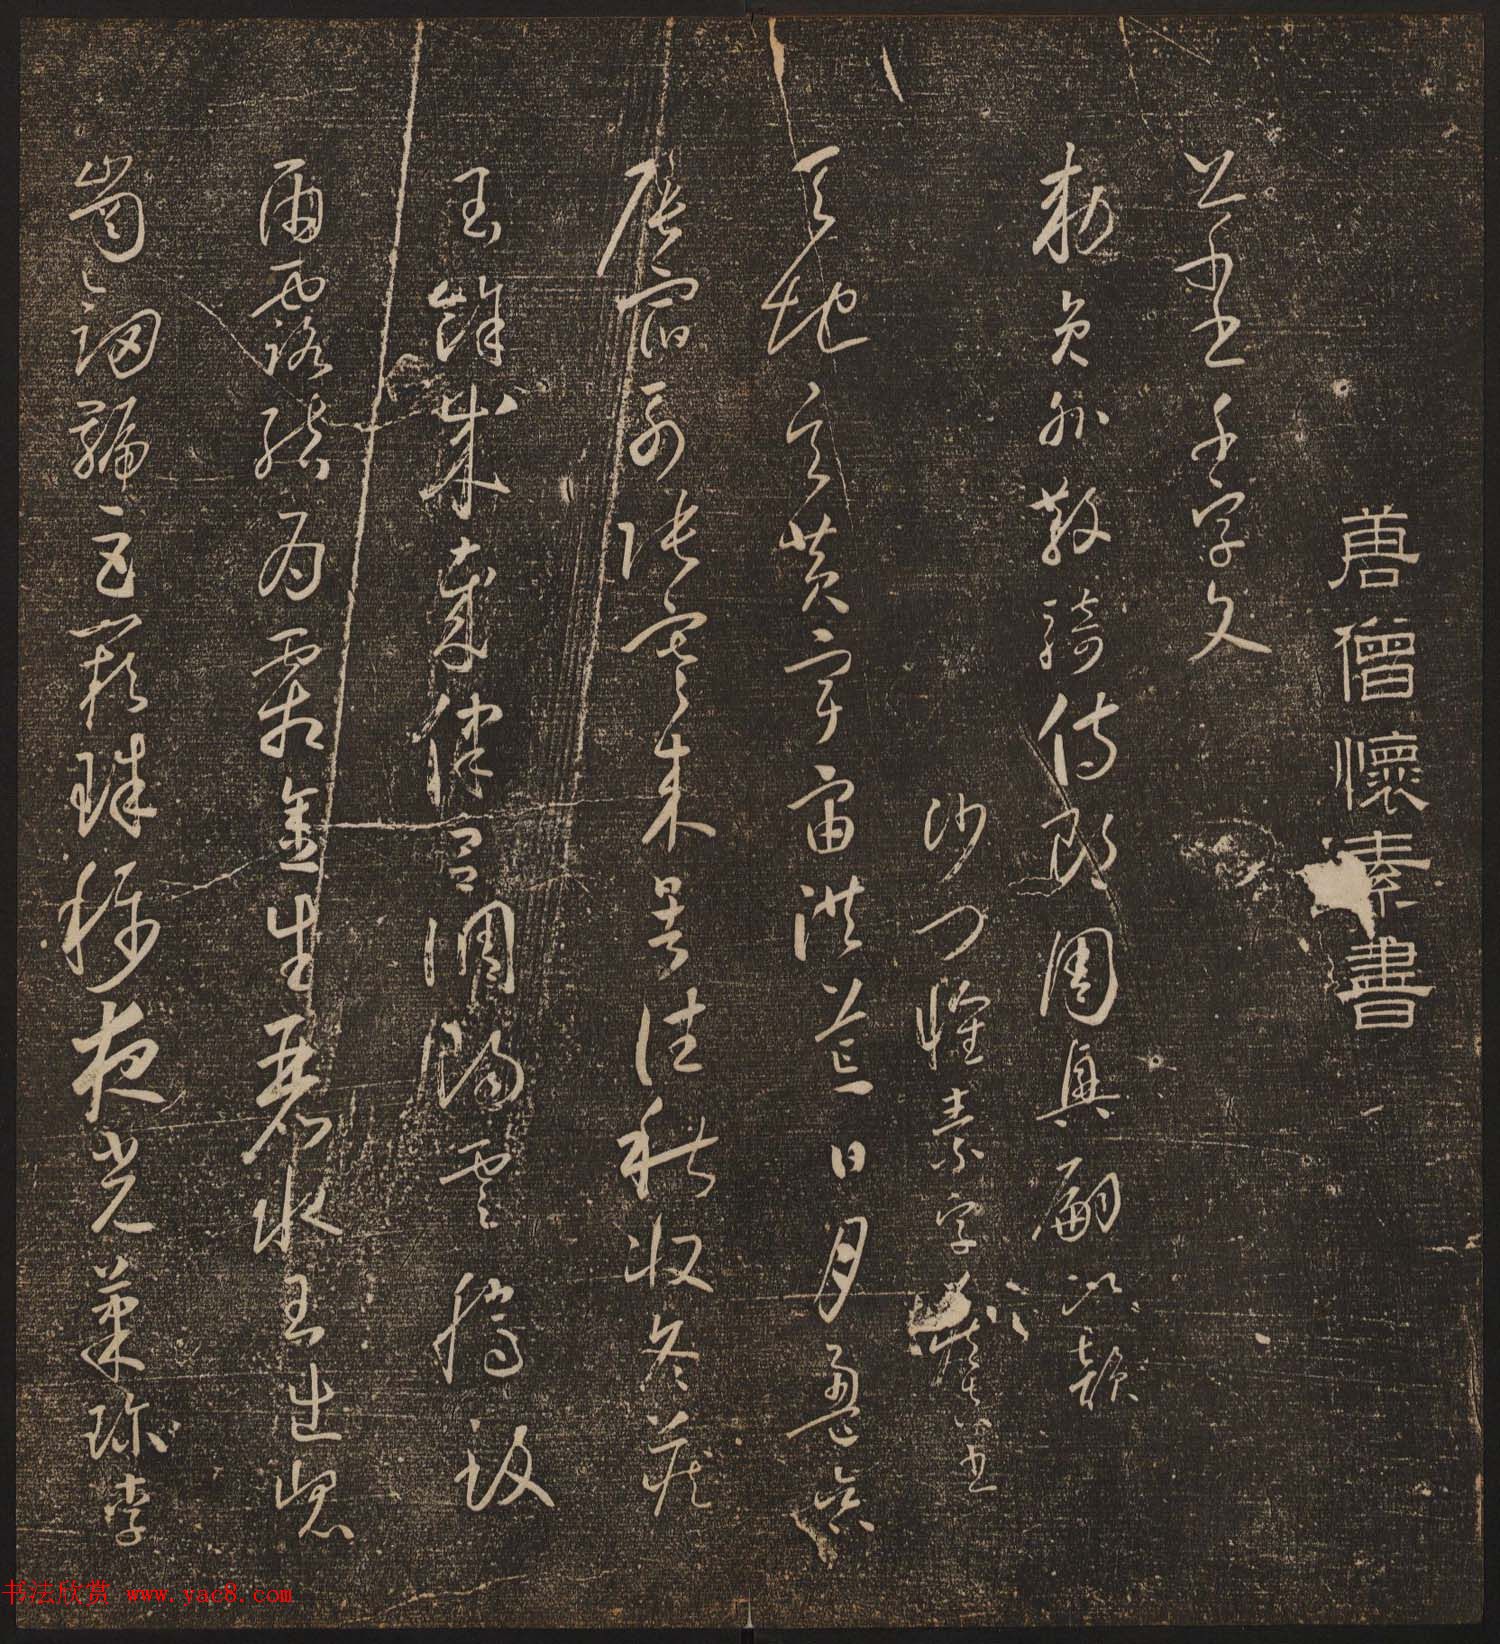 唐僧懷素書
草書千字文
敕員外散騎侍郎周興嗣次韻
沙門懷素字藏真書
天地玄黃宇宙洪荒日月盈昃
辰宿列張寒來暑往秋收冬藏
閏餘成歲律呂調陽雲騰致
雨露結為霜金生麗水玉出崑
崗劍號巨闕珠稱夜光菓珍李
书法欣赏 www.yac8.com